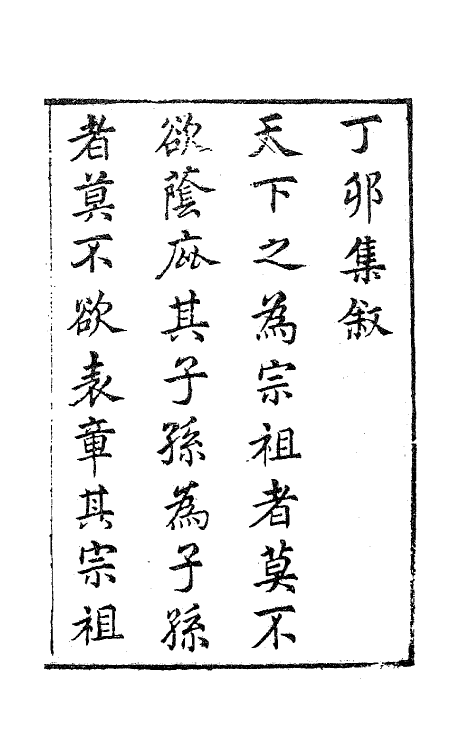 丁卯集敘
天下之為宗祖者莫不
欲蔭庇其子孫為子孫
者莫不欲表章其宗祖